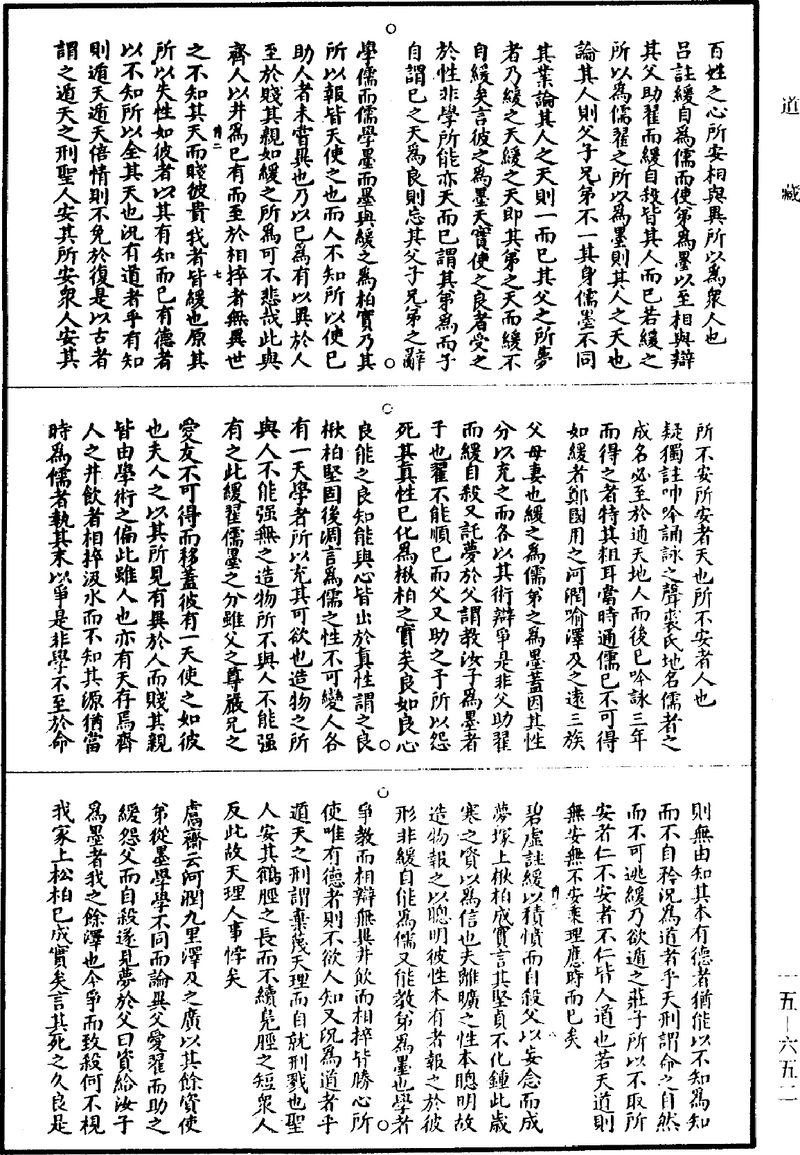 道藏
百姓之心所安相與異所以為衆人也
呂註緩自為儒而使弟為墨以至相與辯
其父助翟而緩自殺皆其人而已若緩之
所以為儒翟之所以為墨則其人之天也
論其人則父子兄弟不一其身儒墨不同
其業論其人之天則一而已其父之所夢
者乃緩之天緩之天即其弟之天而緩不
自緩矣言彼之為墨天實使之良者受之
於性非學所能亦天而已謂其弟為而子
自謂已之天為良則忘其父子兄弟之辭
學儒而儒學墨而墨與緩之為柏實乃其
所以報皆天使之也而人不知所以使已
助人者未嘗異也乃以已為有以異於人
至於賤其親如緩之所為可不悲哉此與
齊人以井為已有而至於相捽者無異世
之不知其天而賤彼貴我者皆緩也原其
所以失性如彼者以其有知而已有德者
以不知所以全其天也況有道者乎有知
則遁天遁天倍情則不免於復是以古者
謂之遁天之刑聖人安其所安衆人安其
所不安所安者天也所不安者人也
疑獨註呻吟誦詠之聲裘氏地名儒者之
成名必至於通天地人而後已吟詠三年
而得之者特其粗耳當時通儒已不可得
如緩者鄭國用之河潤喻澤及之遠三族
父母妻也緩之為儒弟之為墨蓋因其性
分以充之而各以其術辯爭是非父助翟
而緩自殺又託夢於父謂教汝子為墨者
子也翟不能順已而父又助之予所以怨
死其真性已化為楸柏之實矣良如良心
良能之良知能與心皆出於真性謂之良
楸柏堅固後凋言為儒之性不可變人各
有一天學者所以充其可欲也造物之所
與人不能强無之造物所不與人不能强
有之此緩翟儒墨之分雖父之尊嚴兄之
愛友不可得而移蓋彼有一天使之如彼
也夫人之以其所見有異於人而賤其親
皆由學術之偏此雖人也亦有天存焉齊
人之井飲者相捽汲水而不知其源猶當
時為儒者執其末以爭是非學不至於命
則無由知其本有德者猶能以不知為知
而不自矜況為道者乎天刑謂命之自然
而不可逃緩乃欲遁之莊子所以不取所
安者仁不安者不仁皆人道也若天道則
無安無不安乘理應時而已矣
碧虛註緩以積憤而自殺父以妄念而成
夢塚上楸柏成實言其堅貞不化鍾此歲
寒之實以為信也夫離曠之性本聰明故
造物報之以聰明彼性本有者報之於彼
形非緩自能為儒又能教弟為墨也學者
爭教而相辯無異井飲而相捽皆勝心所
使唯有德者則不欲人知又況為道者乎
遁天之刑謂棄蔑天理而自就刑戮也聖
人安其鶴脛之長而不續鳧脛之短衆人
反此故天理人事悖矣
鬳齋云河潤九里澤及之廣以其餘資使
弟從墨學學不同而論異父愛翟而助之
緩怨父而自殺遂見夢於父曰資給汝子
為墨者我之餘澤也今爭而致殺何不視
我冢上松柏已成實矣言其死之久良是
一五—六五二